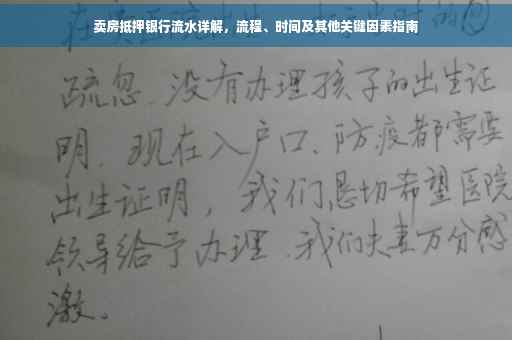 卖房抵押银行流水详解，流程、时间及其他关键因素指南
疏忽、没有办理孩子的出生证
明、现在入户口、防疫都需要
出生证明，我们恳切希望医院
领导给予办理、我们夫妻万分感
激。